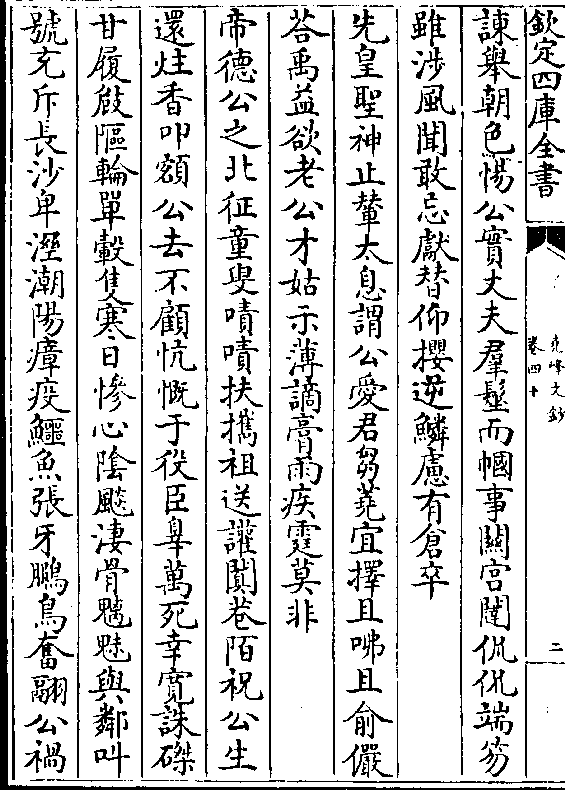 欽定四庫全書
堯峰文鈔
卷四十
二
諫舉朝色惕公實丈夫羣髽而幗事闗宫闥侃侃端笏
雖涉風聞敢忘獻替仰攖逆鱗慮有倉卒
先皇聖神止輦太息謂公愛君芻蕘宜擇且咈且俞儼
荅禹益欲老公才姑示薄謫膏雨疾霆莫非
帝德公之北征童叟嘖嘖扶攜祖送讙闐巷陌祝公生
還炷香叩額公去不顧忼慨于役臣辠萬死幸寛誅磔
甘履嵌嶇輪單轂隻寒日慘心陰颷淒骨魑魅與鄰叫
號充斥長沙卑溼潮陽瘴疫鱷魚張牙鵬鳥奮翮公禍